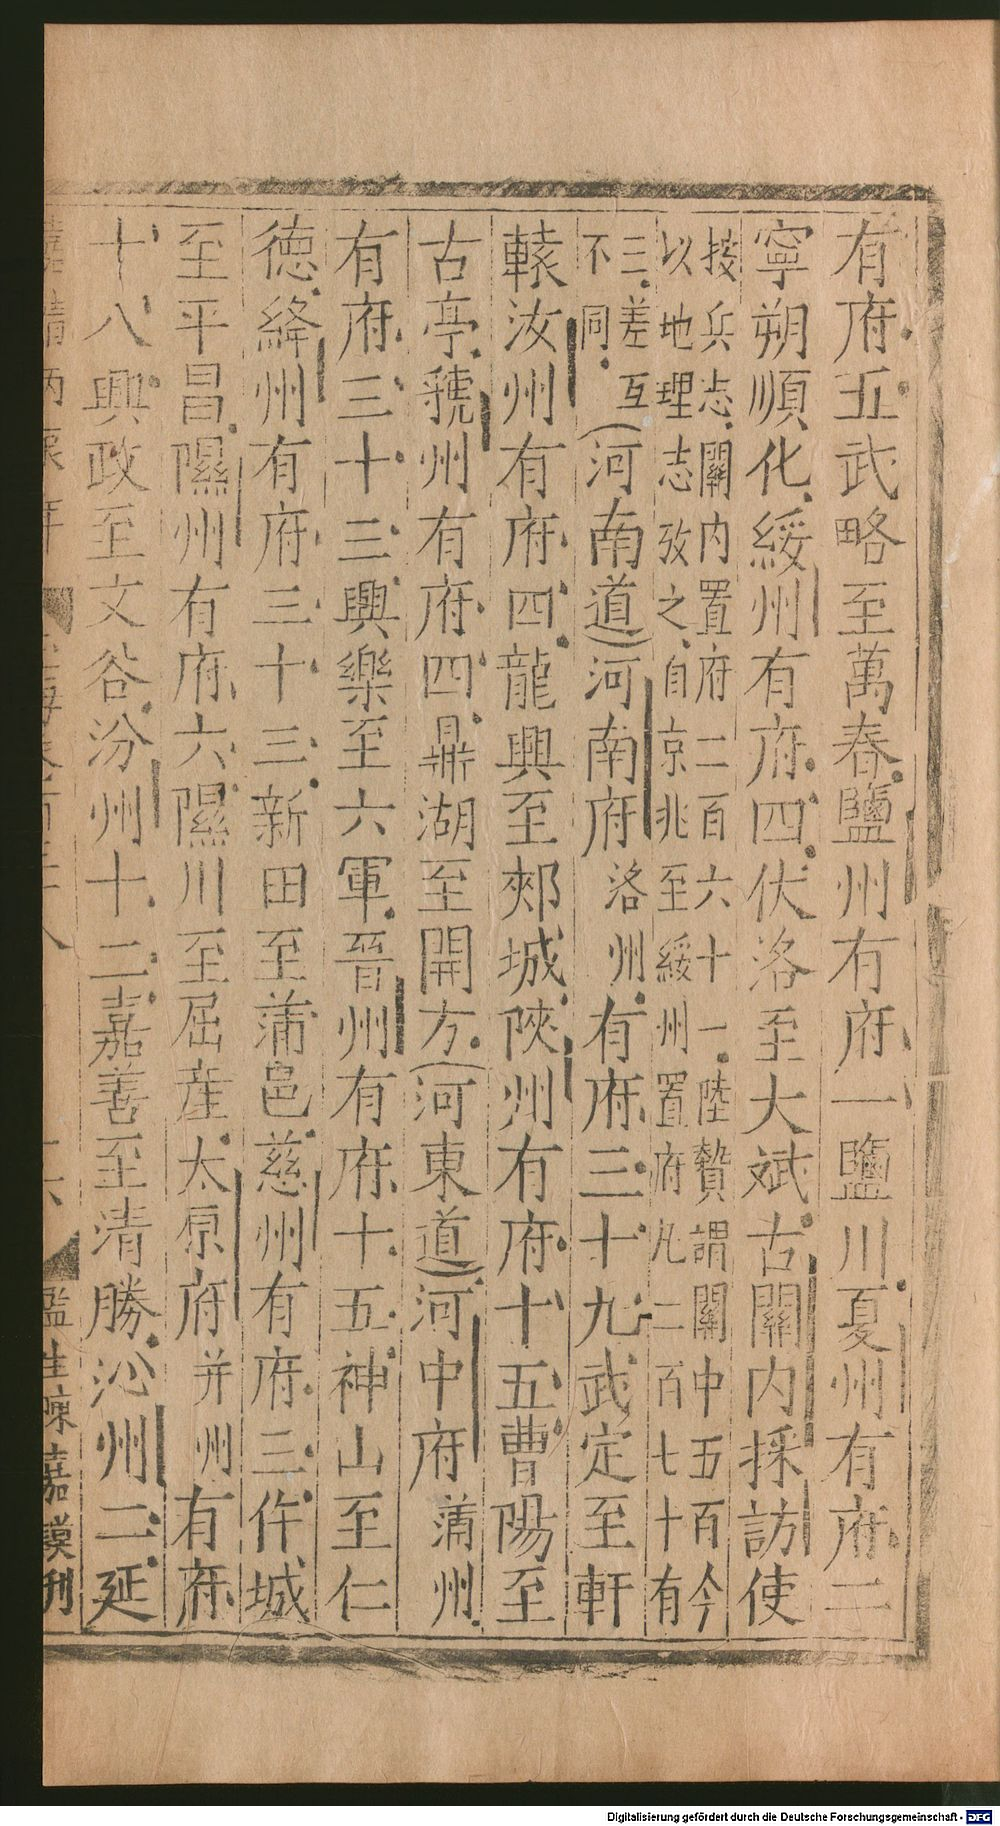 有府五武略至萬春鹽州有府一鹽川夏州有府二
寧朔順化綏州有府四伏洛至大斌古關内採訪使
按兵志關内置府二百六十一陸贄謂關中五百今
以地理志攷之自京兆至綏州置府凡二百七十有
三差互
不同
河南道河南府洛州有府三十九武定至軒
轅汝州有府四龍興至郟城陝州有府十五曹陽至
古亭虢州有府四鼎湖至開方河東道河中府蒲州
有府三十三興樂至六軍晉州有府十五神山至仁
德絳州有府三十三新田至蒲邑慈州有府三仵城
至平昌隰州有府六隰川至屈産太原府并州有府
十八興政至文谷汾州十二嘉善至清勝沁州二延
嘉靖丙辰年
監生陳嘉謨刊
Digitalisierung gefördert durch die Deutsche Forschungsgemeinschaft - DFG